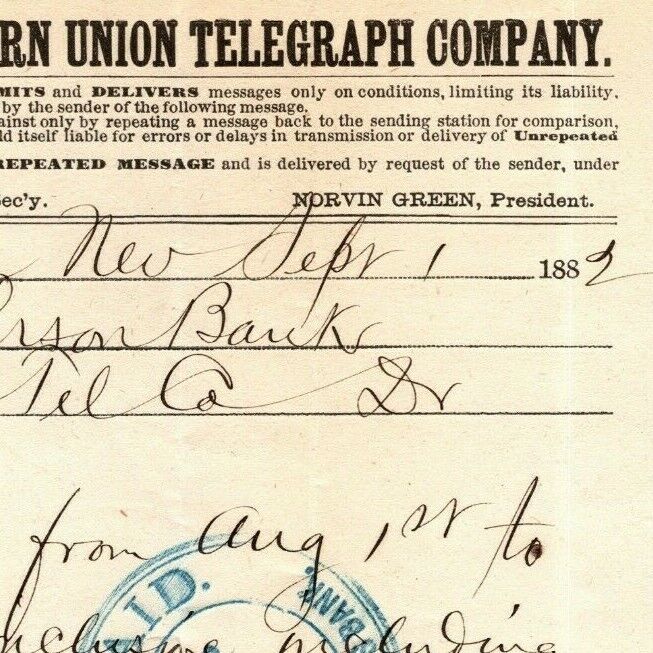 RN UNION TELEGRAPH COMPANY.
MITS and DELIVERS messages only on conditions, limiting its liability,
by the sender of the following message.
ainst only by repeating a message back to the sending station for comparison,
ld itself liable for errors or delays in transmission or delivery of Unrepeated
REPEATED MESSAGE and is delivered by request of the sender, under
Sec'y. NORVIN GREEN, President.
Nev Sept 1 1882
erson Bank
Tel Co Dr
from Aug 1st to
AID. BANK
nclusive including